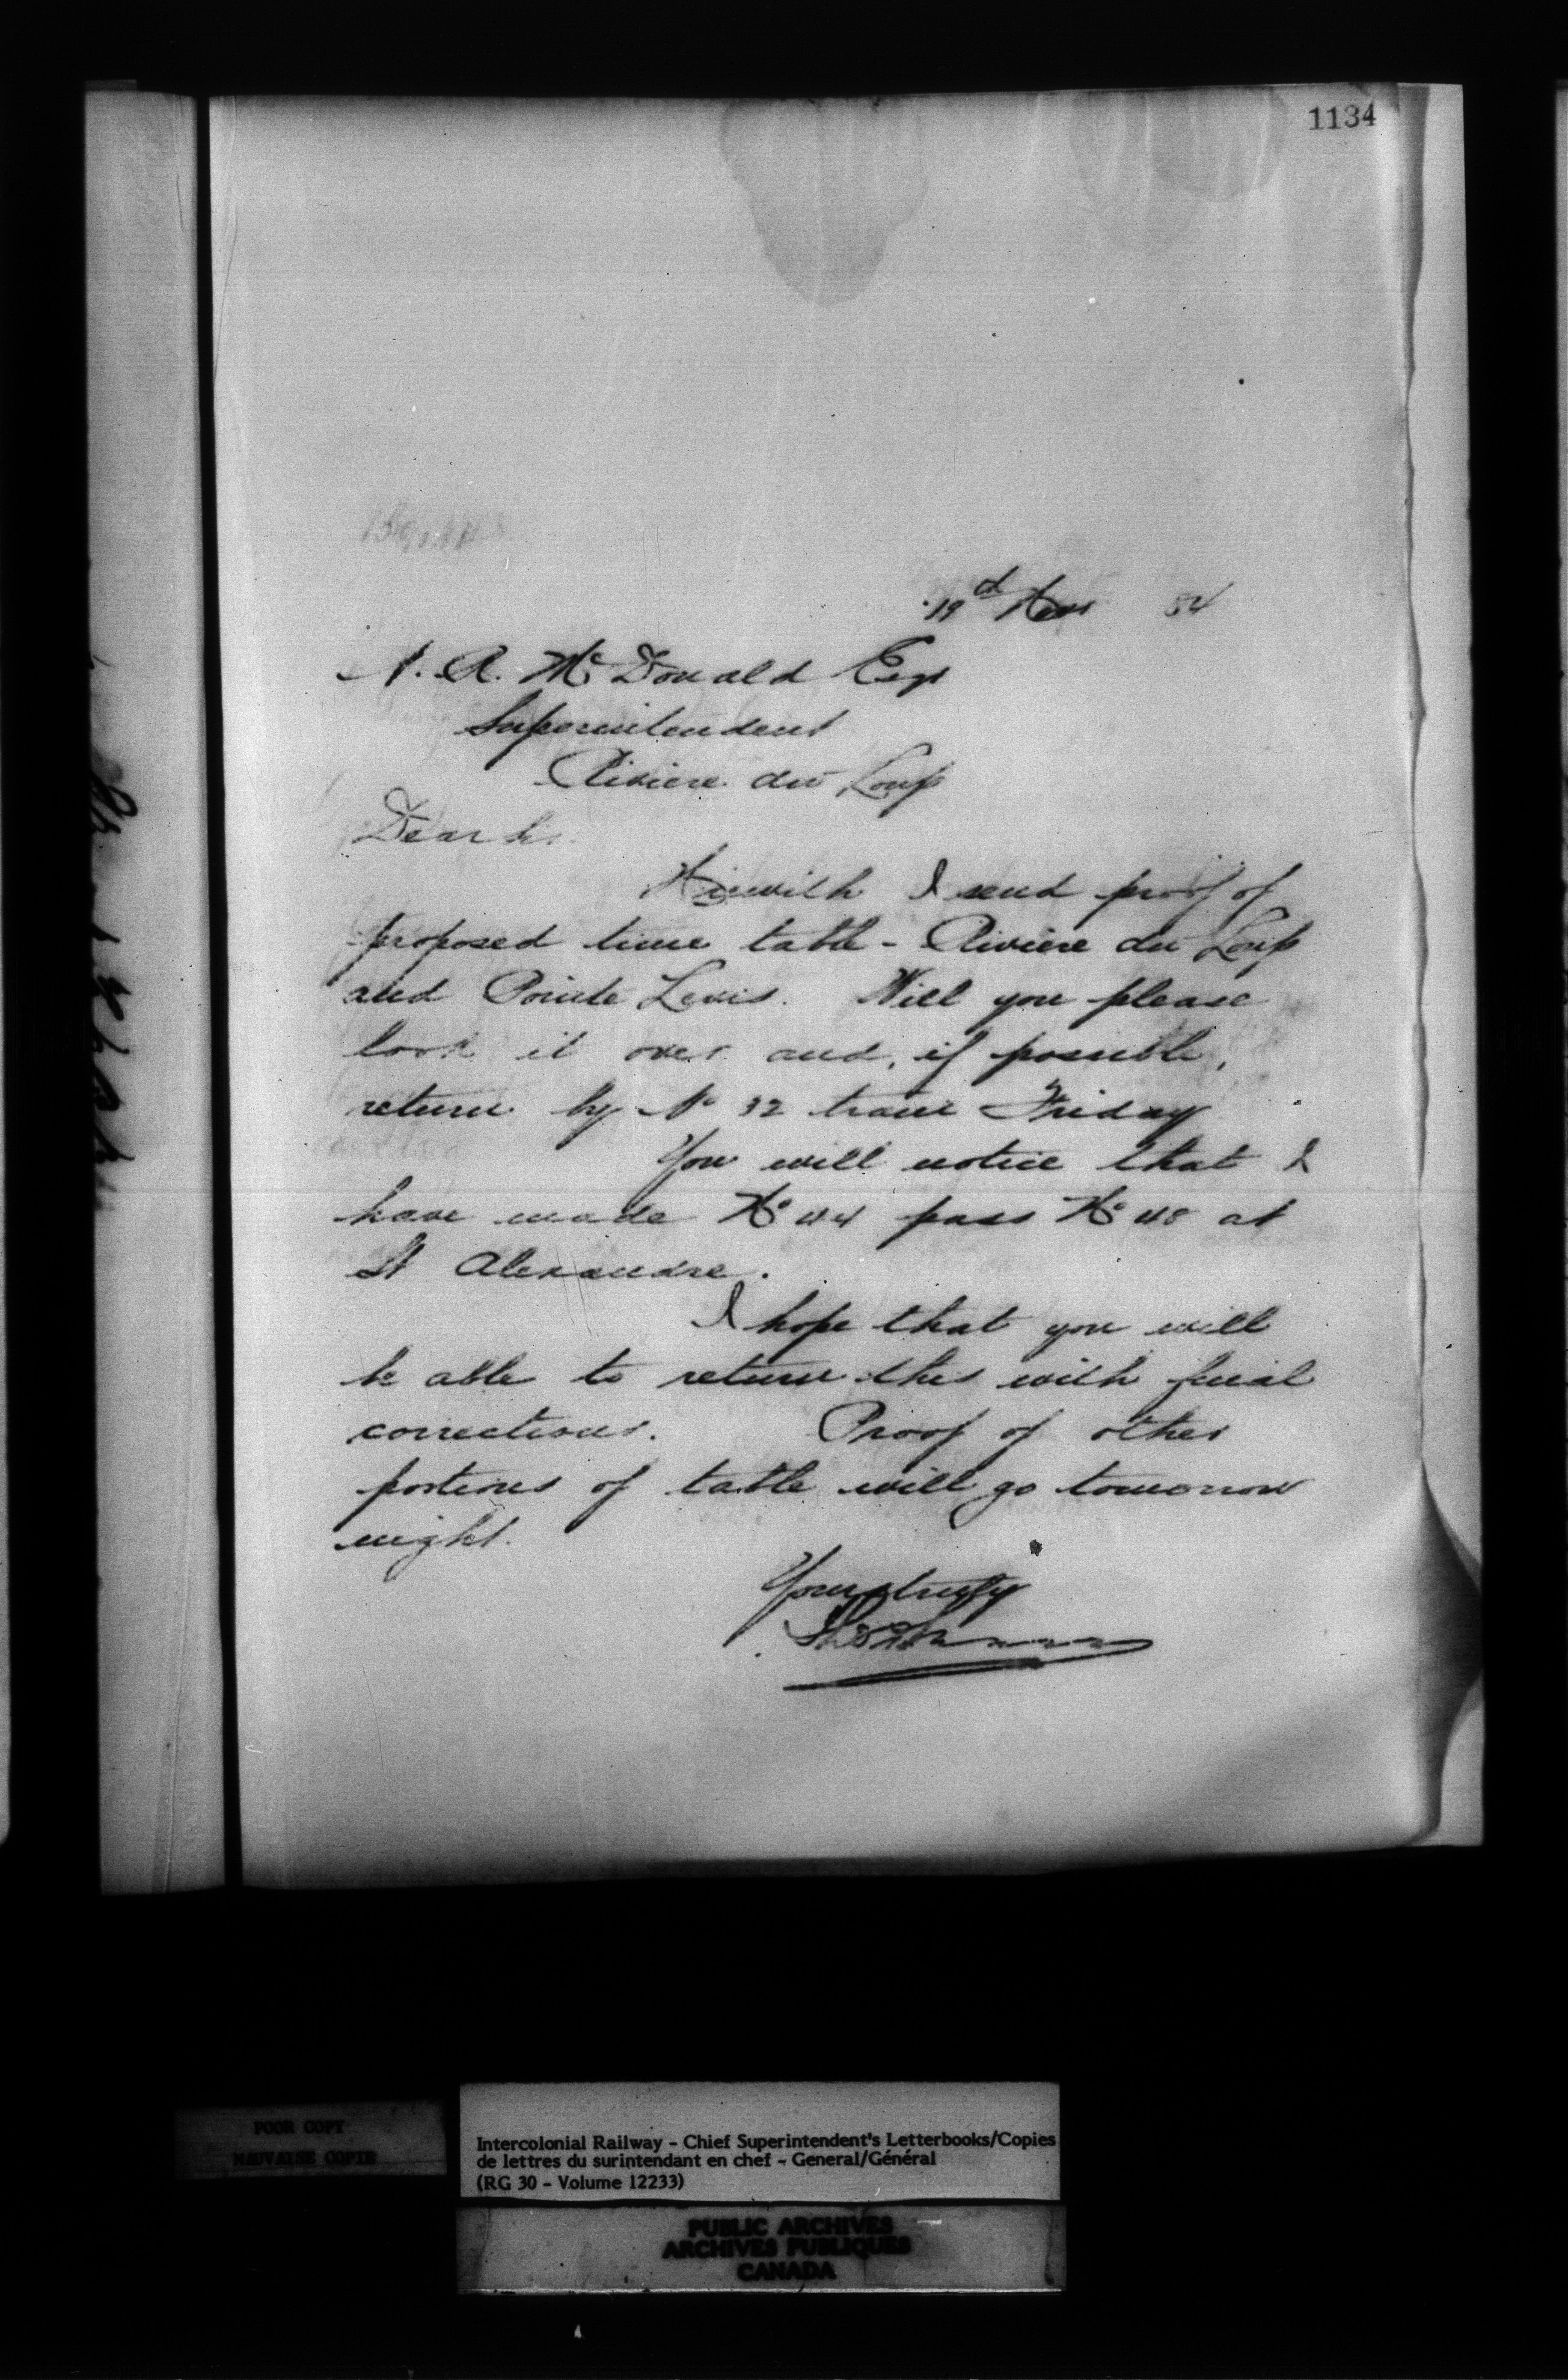 1134
19th Nov 84
A. R. McDonald Esqr
Superintendent
Riviere du Loup
Dear Sir
Herewith I send proof of
proposed time table - Riviere du Loup
and Pointe Levis. Will you please
look it over and, if possible,
return by No 32 train Friday
You will notice that I
have made No 44 pass No 48 at
St Alexandre.
I hope that you will
be able to return this with final
corrections. Proof of other
portions of table will go tomorrow
night.
Yours truly
POOR COPY
MAUVAISE COPIE
Intercolonial Railway - Chief Superintendent's Letterbooks/Copies
de lettres du surintendant en chef - General/Général
(RG 30 - Volume 12233)
PUBLIC ARCHIVES
ARCHIVES PUBLIQUES
CANADA